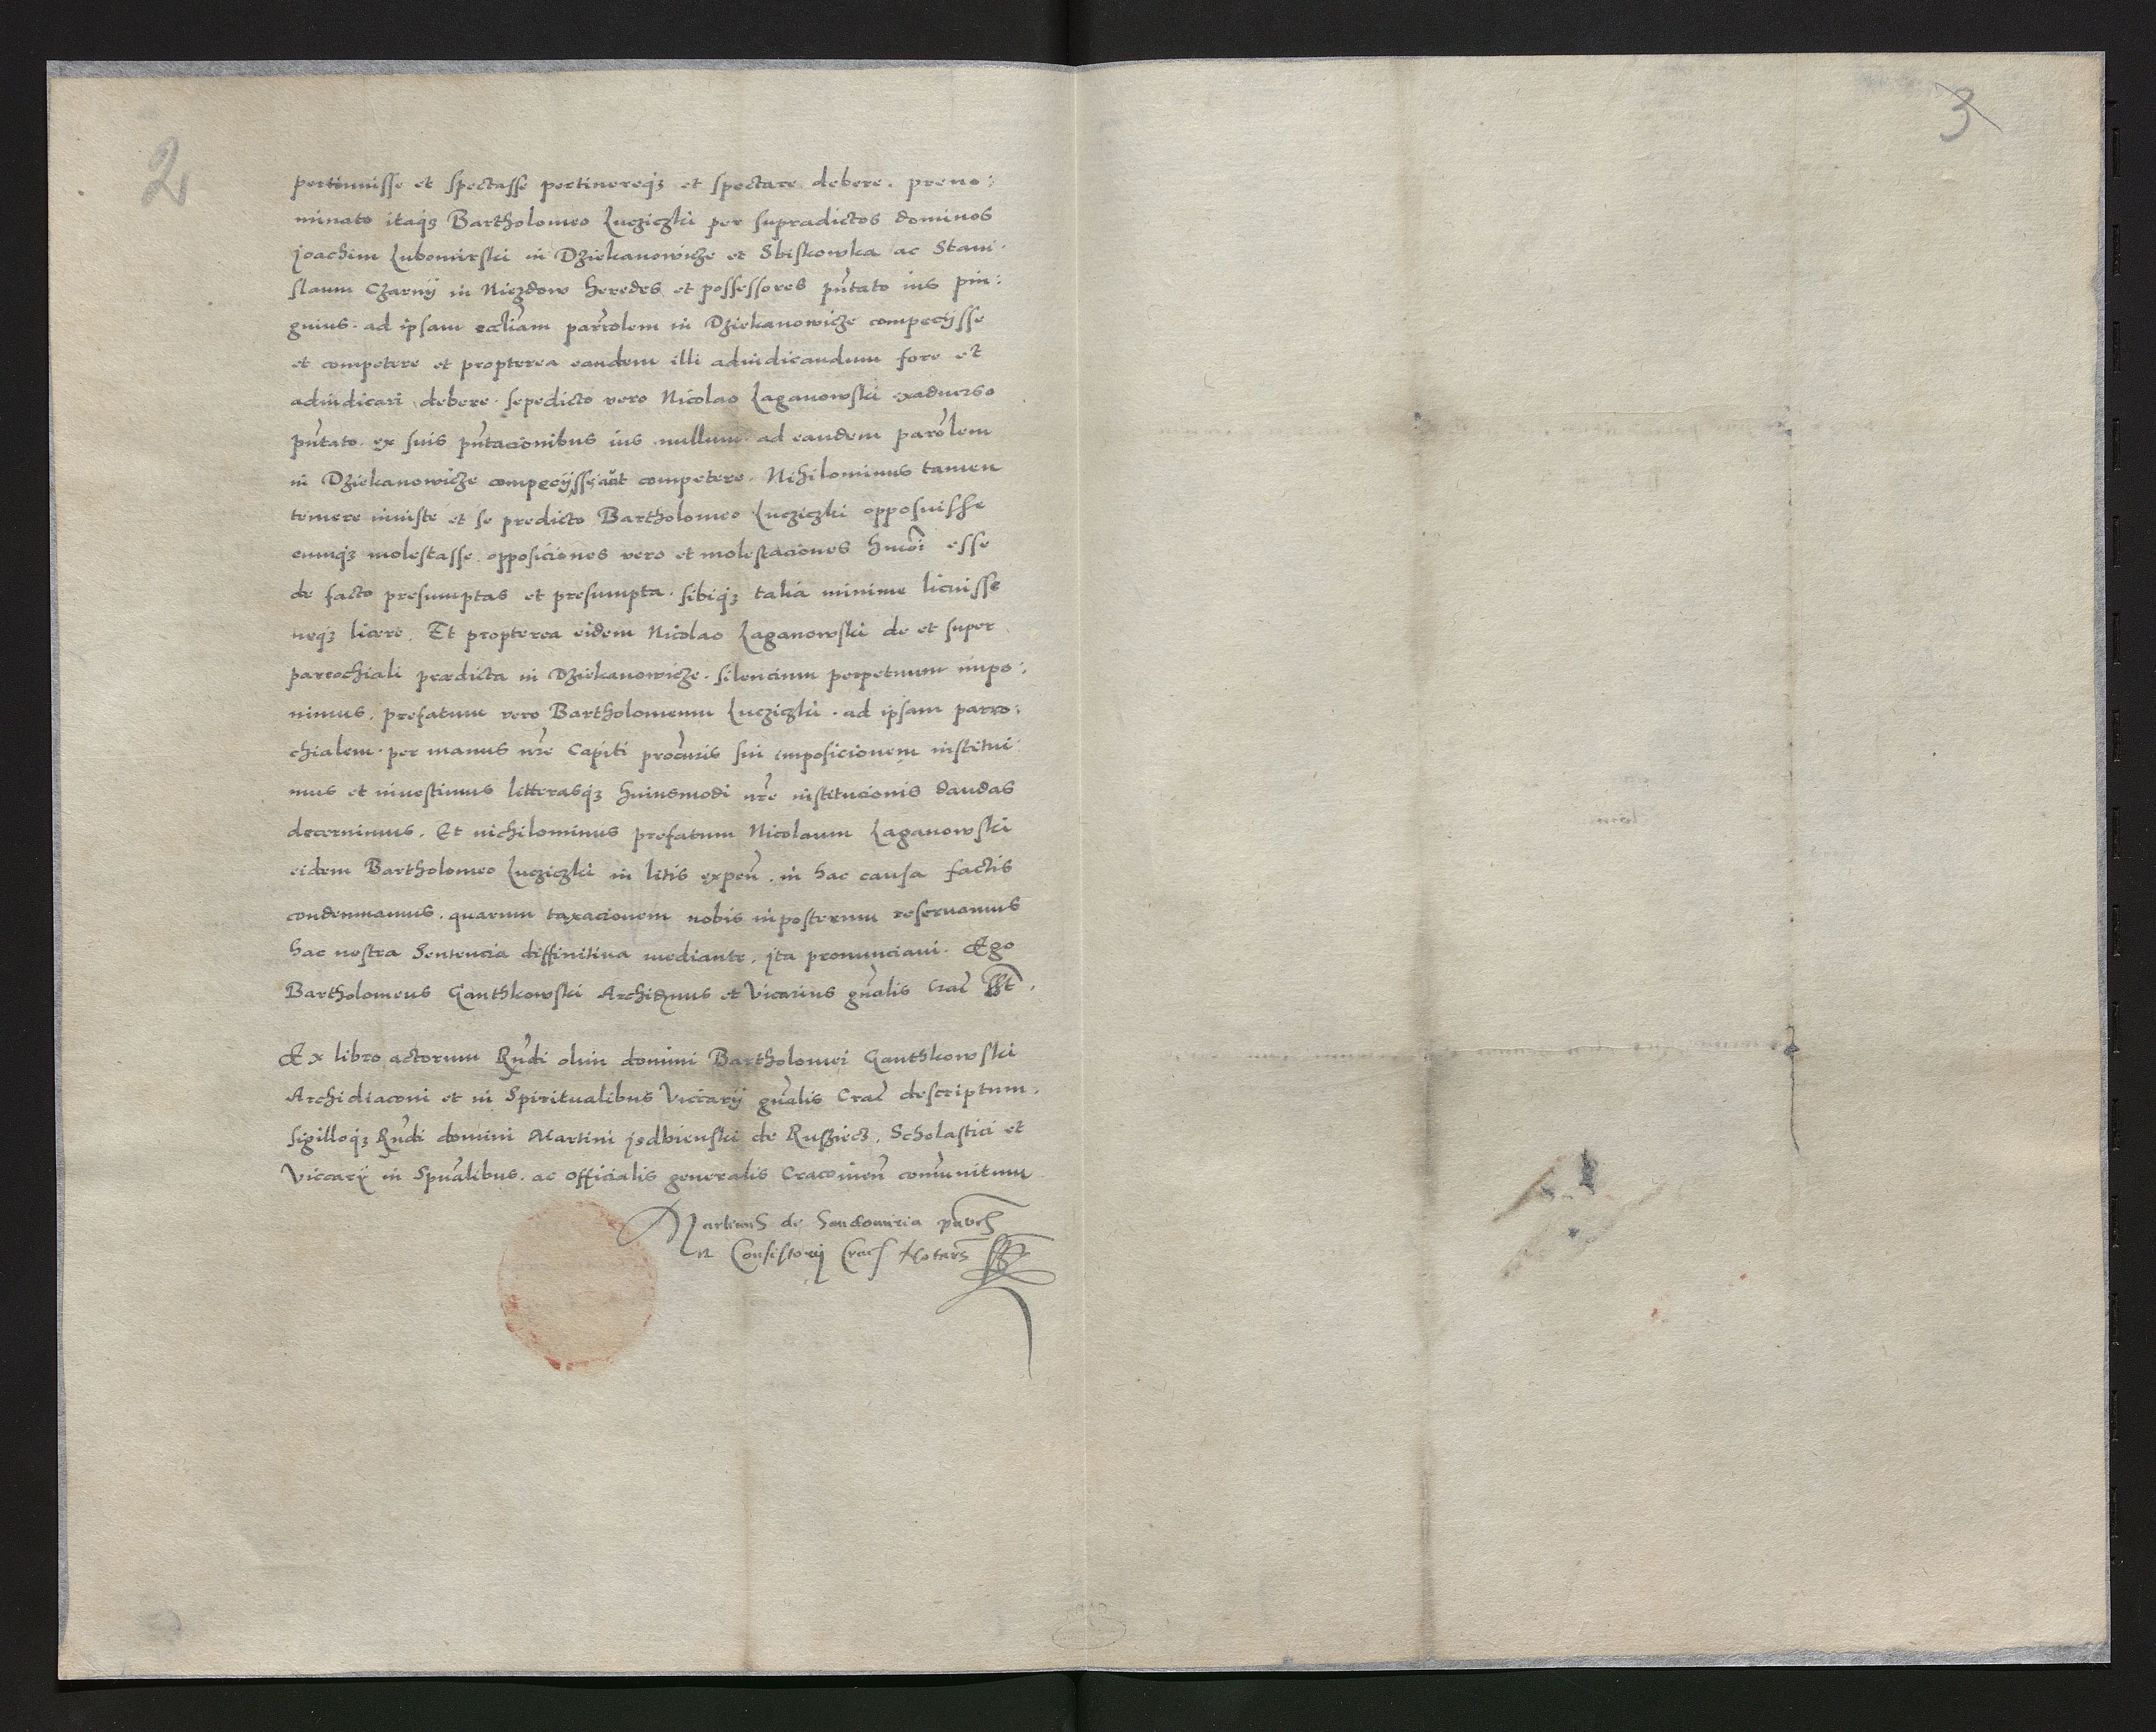 2
3
pertinuisse et spectasse pertinereqꝫ et spectare debere. preno:
minato itaqꝫ Bartholomeo Lucziczki per supradictos dominos
Joachim Lubomirski in Dziekanowicze et Sbiskowka ac Stani
slaum Czarny in Niezdow heredes et possessores pñtato ius pin:
guius. ad ipsam eccliam parrolem in Dziekanowicze compecijsse
et competere et propterea eandem illi adiudicandum fore et
adiudicari debere. sepedicto vero Nicolao Laganowski exaduerso
pñtato. ex suis pñtacionibus ius nullum ad eandem parolem
in Dziekanowicze compecijsse aut competere. Nihilominus tamen
temere iniuste et se predicto Bartholomeo Lucziczki opposuisse
eumqꝫ molestasse. opposiciones vero et molestaciones hmoi esse
de facto presumptas et presumpta. sibiqꝫ talia minime licuisse
neqꝫ licere. Et propterea eidem Nicolao Laganowski de et super
parrochiali predicta in Dziekanowicze. silencium perpetuum impo:
nimus. prefatum vero Bartholomeum Lucziczki. ad ipsam parro:
chialem. per manus nre Capiti procuris sui imposicionem institui
mus et inuestimus litterasqꝫ huiusmodi nre institucionis dandas
decernimus. Et nichilominus prefatum Nicolaum Laganowski
eidem Bartholomeo Lucziczki in litis expen. in hac causa factis
condemnamus. quarum taxacionem nobis inposterum reseruamus
hac nostra Sentencia diffinitiua mediante. ita pronunciaui. Ego
Bartholomeus Ganthkowski Archidnus et Vicarius gnalis Crac
Ex libro actorum Rndi olim domini Bartholomei Ganthkowski
Archidiaconi et in Spiritualibus Viccarij gnalis Crac descriptum.
sigilloqꝫ Rndi domini Martini jzdbienski de Rusziecz. Scholastici et
Viccarij in Spualibus. ac officialis generalis Cracouien comunitum
Martinus de Sandomiria
Consistorij Crac Notars